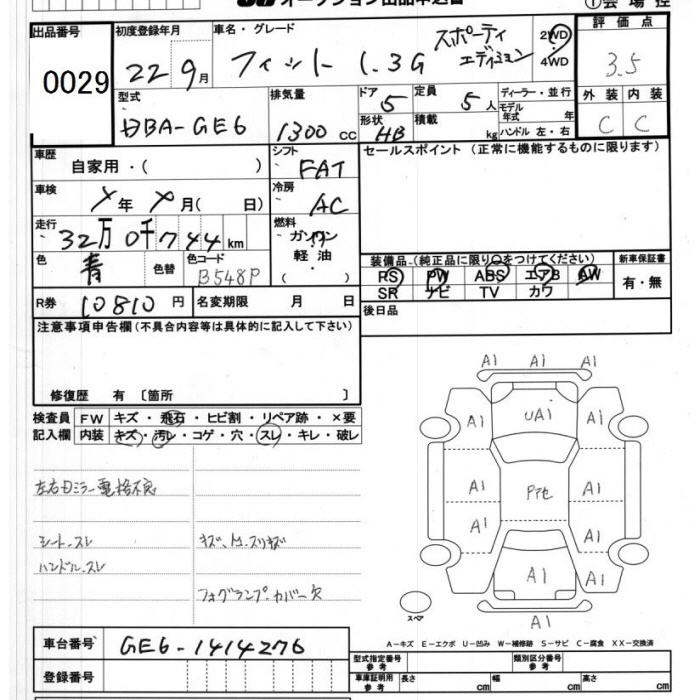 オークション出品申込書
①会場控
出品番号 0029
初度登録年月 22 9月
車名・グレード フィット 1.3G スポーティ エディション
2WD・4WD
評価点 3.5
外装 C 内装 C
型式 DBA-GE6
排気量 1300 cc
ドア 5 形状 HB
定員 5人
積載 kg
ディーラー・並行
モデル年式 年
ハンドル 左・右
車歴 自家用・( )
シフト FAT
セールスポイント (正常に機能するものに限ります)
車検 年 月( 日)
冷房 AC
走行 32万0千744km
燃料 ガソリン・軽油・( )
色 青 色替 色コード B548P
装備品 (純正品に限り○をつけてください)
新車保証書 有・無
PS PW ABS エアB AW
SR ナビ TV カワ
R券 10810円
名変期限 月 日
後日品
注意事項申告欄(不具合内容等は具体的に記入して下さい)
修復歴 有 〔箇所 〕
検査員記入欄
FW キズ・飛石・ヒビ割・リペア跡・×要
内装 キズ・汚レ・コゲ・穴・スレ・キレ・破レ
シート.スレ
ハンドル.スレ
フォグランプ.カバー欠
A1 A1 A1
A1 UA1 A1
A1 A1
A1 A1
A1
A1
スペア
A-キズ E-エクボ U-凹み W-補修跡 S-サビ C-腐食 XX-交換済
車台番号 GE6-1414276
登録番号
型式指定番号 参考
類別区分番号 参考
車庫証明用 参考 長さ cm 幅 cm 高さ cm